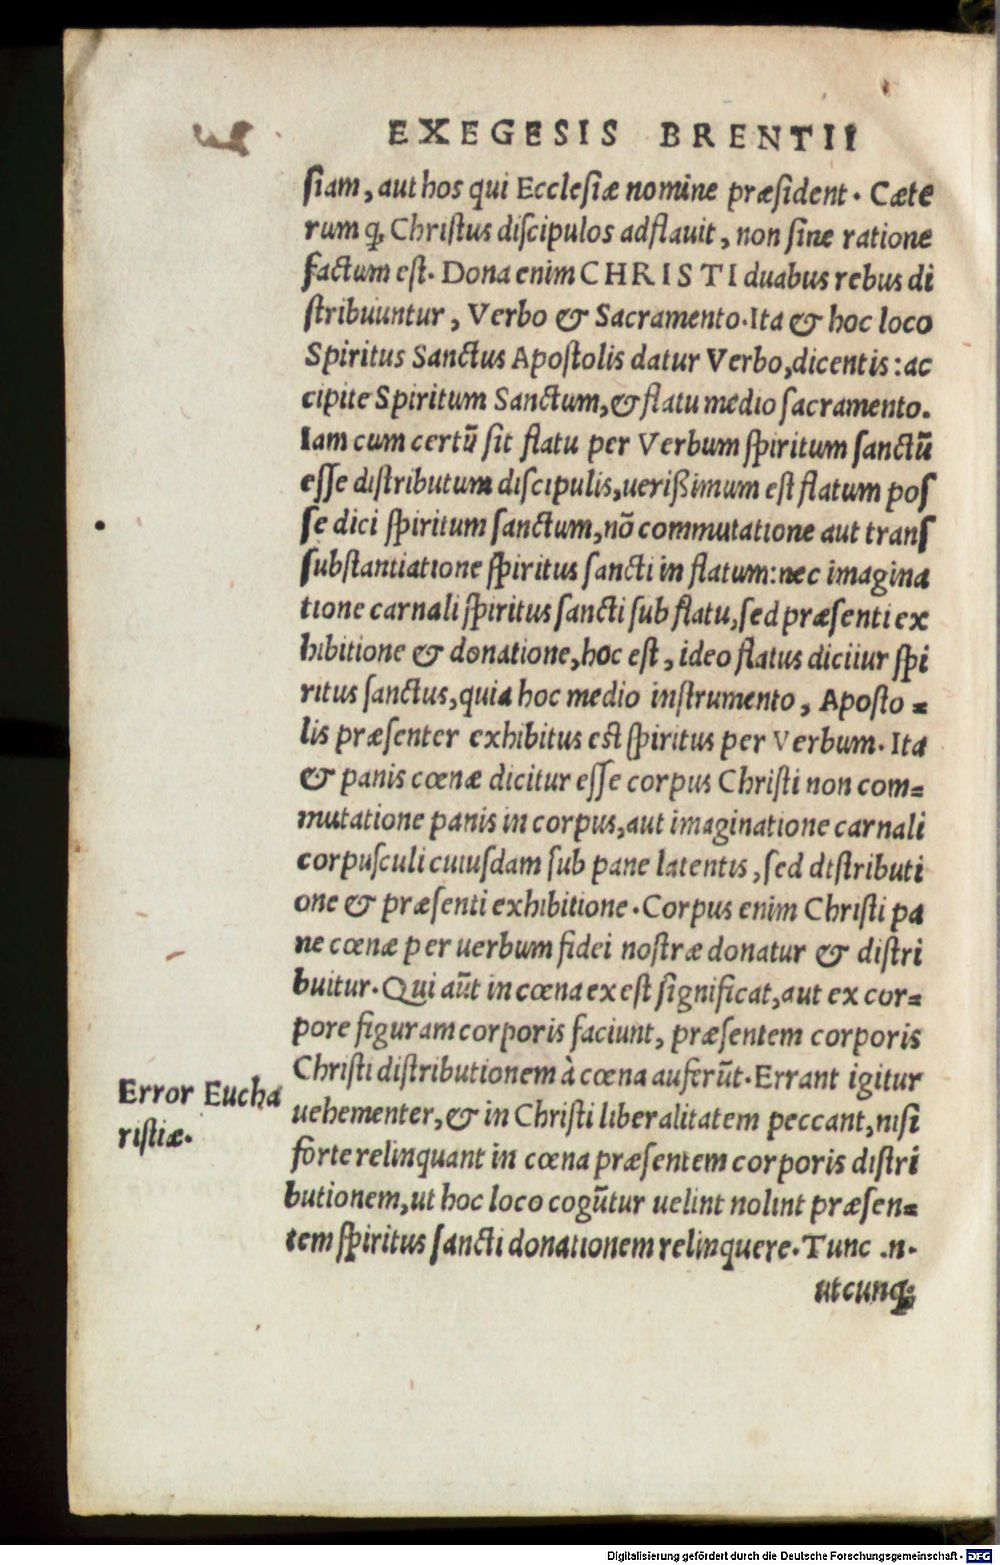 EXEGESIS BRENTII
siam, aut hos qui Ecclesiæ nomine præsident. Cæte
rum q; Christus discipulos adflauit, non sine ratione
factum est. Dona enim CHRISTI duabus rebus di
stribuuntur, Verbo & Sacramento. Ita & hoc loco
Spiritus Sanctus Apostolis datur Verbo, dicentis: ac
cipite Spiritum Sanctum, & flatu medio sacramento.
Iam cum certū sit flatu per Verbum spiritum sanctū
esse distributum discipulis, uerißimum est flatum pos
se dici spiritum sanctum, nō commutatione aut trans
substantiatione spiritus sancti in flatum: nec imagina
tione carnali spiritus sancti sub flatu, sed præsenti ex
hibitione & donatione, hoc est, ideo flatus diciiur spi
ritus sanctus, quia hoc medio instrumento, Aposto=
lis præsenter exhibitus est spiritus per Verbum. Ita
& panis cœnæ dicitur esse corpus Christi non com=
mutatione panis in corpus, aut imaginatione carnali
corpusculi cuiusdam sub pane latentis, sed distributi
one & præsenti exhibitione. Corpus enim Christi pa
ne cœnæ per uerbum fidei nostræ donatur & distri
buitur. Qui aūt in cœna ex est significat, aut ex cor=
pore figuram corporis faciunt, præsentem corporis
Christi distributionem à cœna auferūt. Errant igitur
Error Eucha
ristiæ.
uehementer, & in Christi liberalitatem peccant, nisi
forte relinquant in cœna præsentem corporis distri
butionem, ut hoc loco cogūtur uelint nolint præsen=
tem spiritus sancti donationem relinquere. Tunc .n.
utcunq;
Digitalisierung gefördert durch die Deutsche Forschungsgemeinschaft - DFG